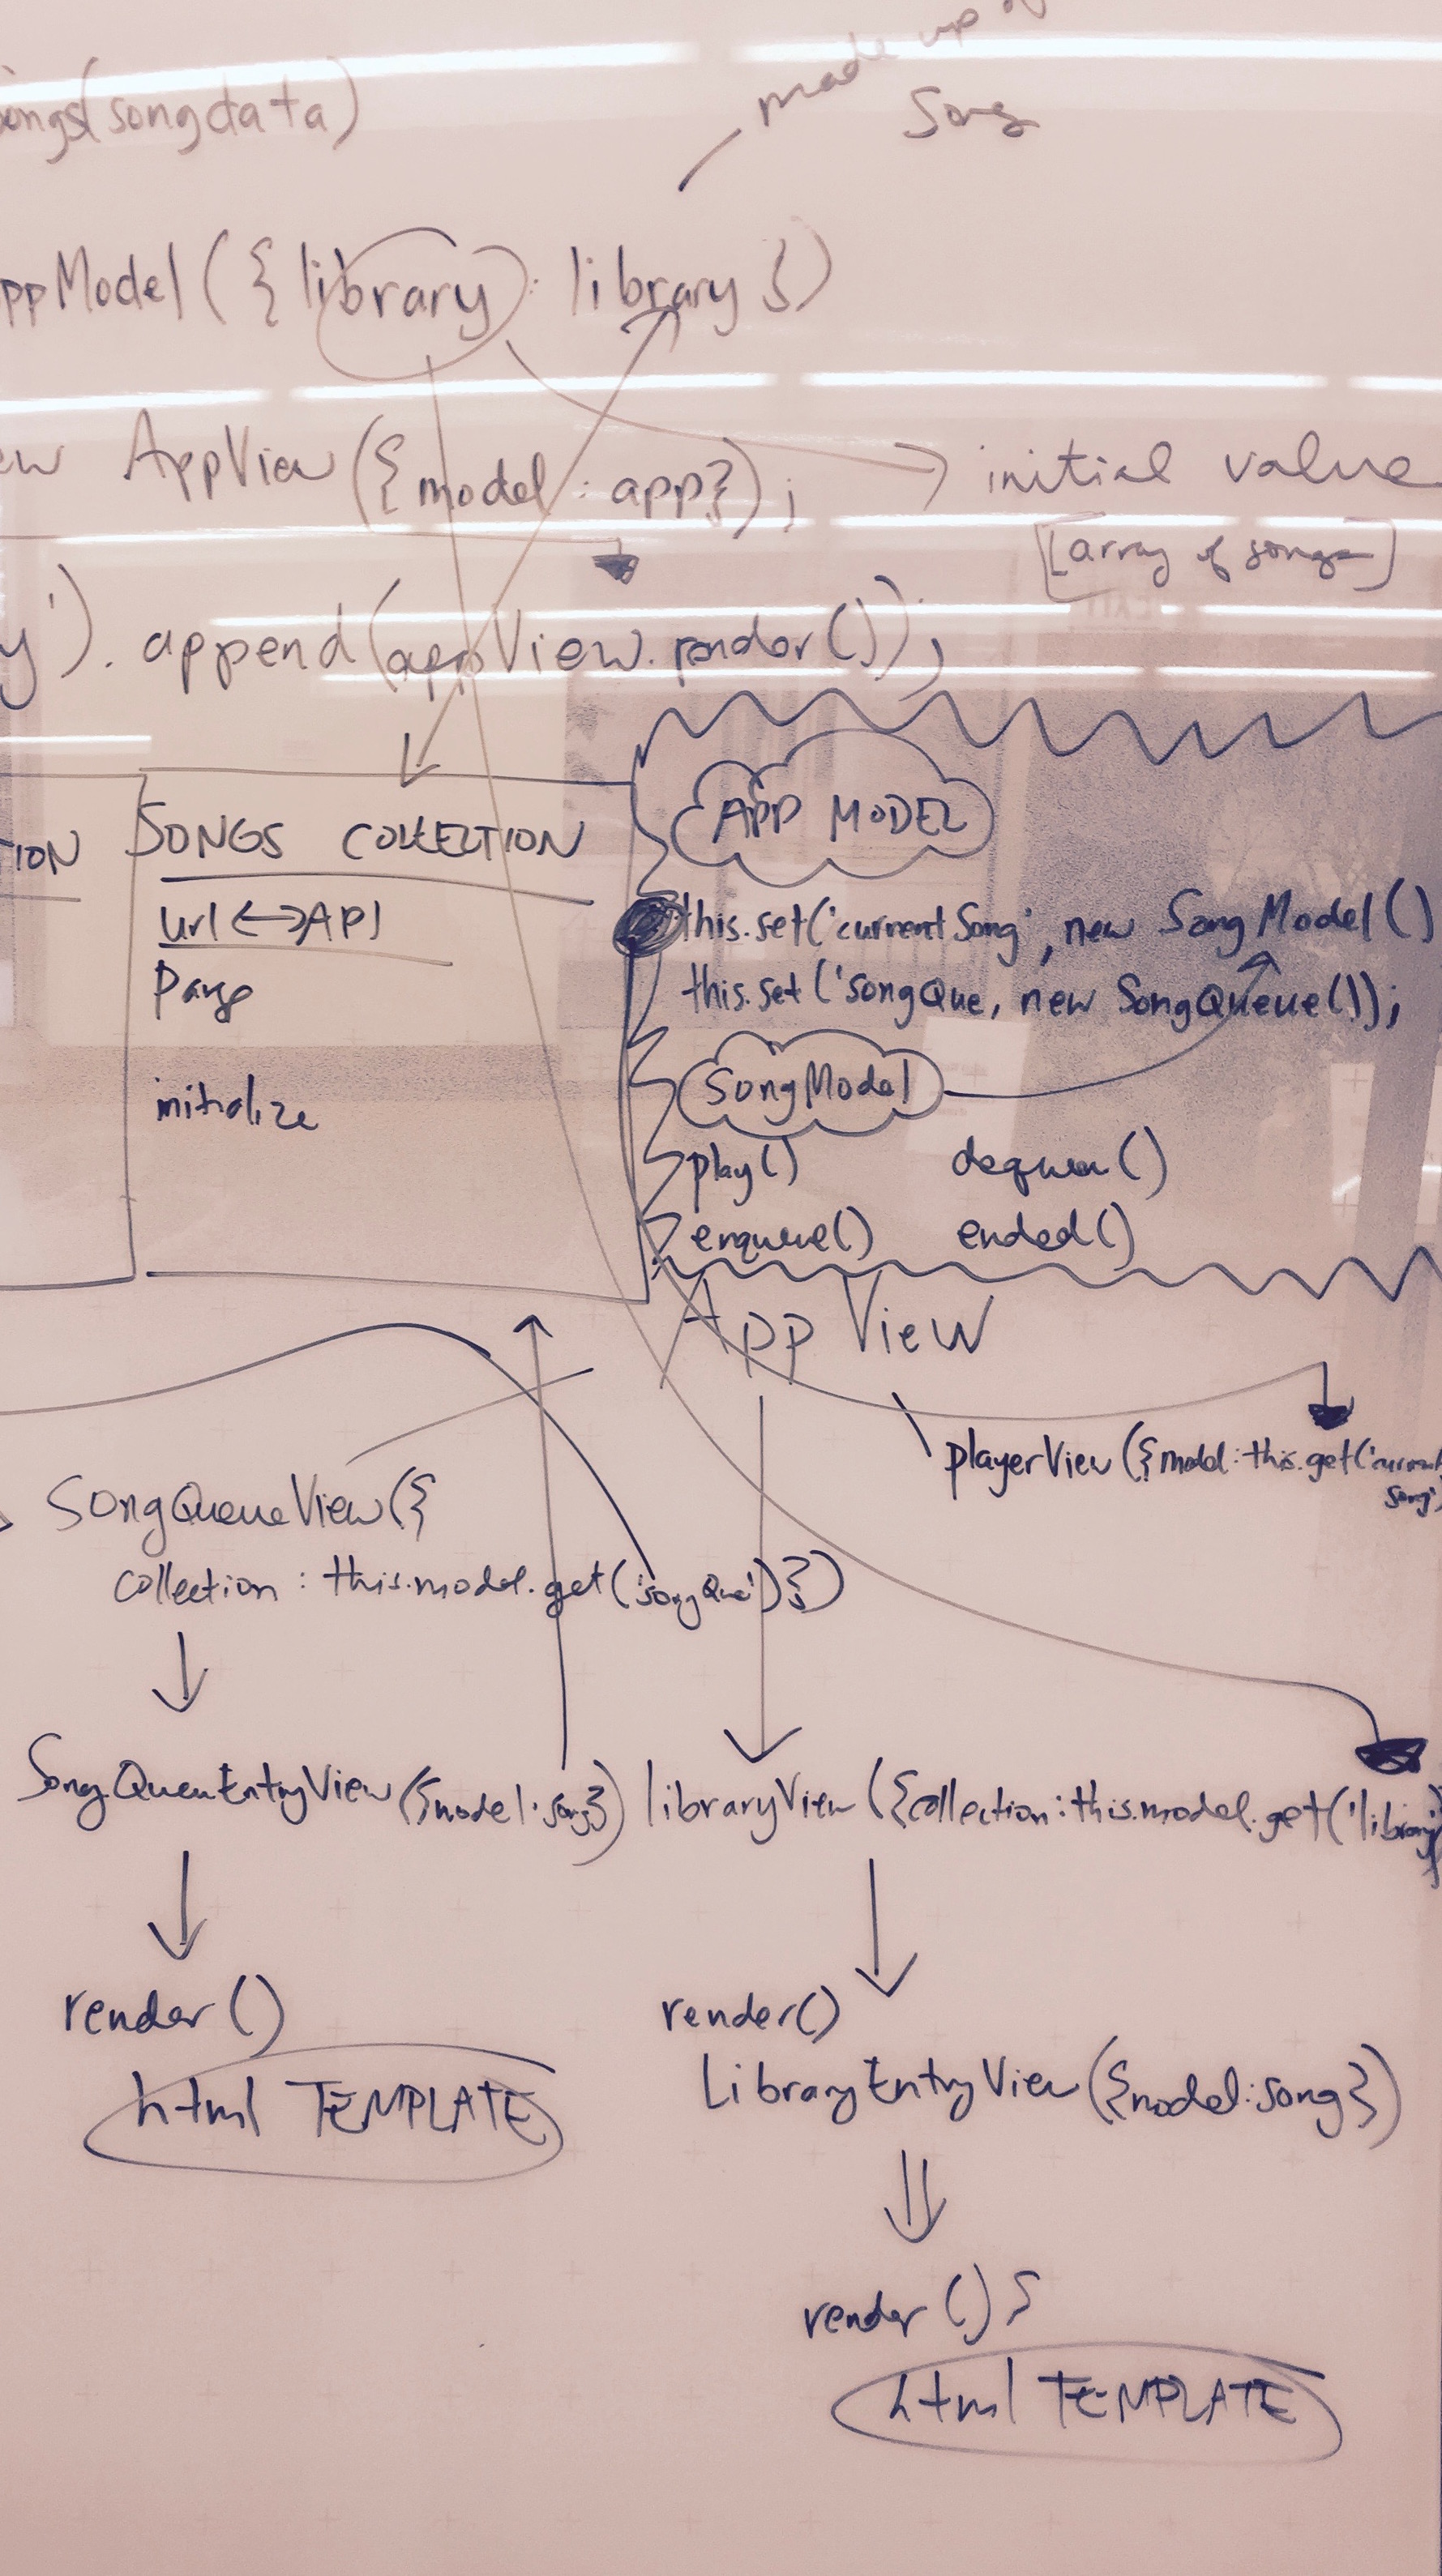 made up of
Song
ongs(songdata)
ppModel({library: library})
ew AppView({model: app});
initial value
[array of songs]
y'). append(appView.render());
TION
SONGS COLLECTION
url <-> API
Parse
initialize
APP MODEL
this.set('currentSong', new SongModel()
this.set('songQue, new SongQueue());
SongModel
play()
enqueue()
ended()
App View
playerView({model: this.get('current
song'
SongQueueView({
collection: this.model.get('songQue')})
SongQueueEntryView({model: song})
libraryView({collection: this.model.get('library'
render()
html TEMPLATE
render()
LibraryEntryView({model: song})
render() {
html TEMPLATE